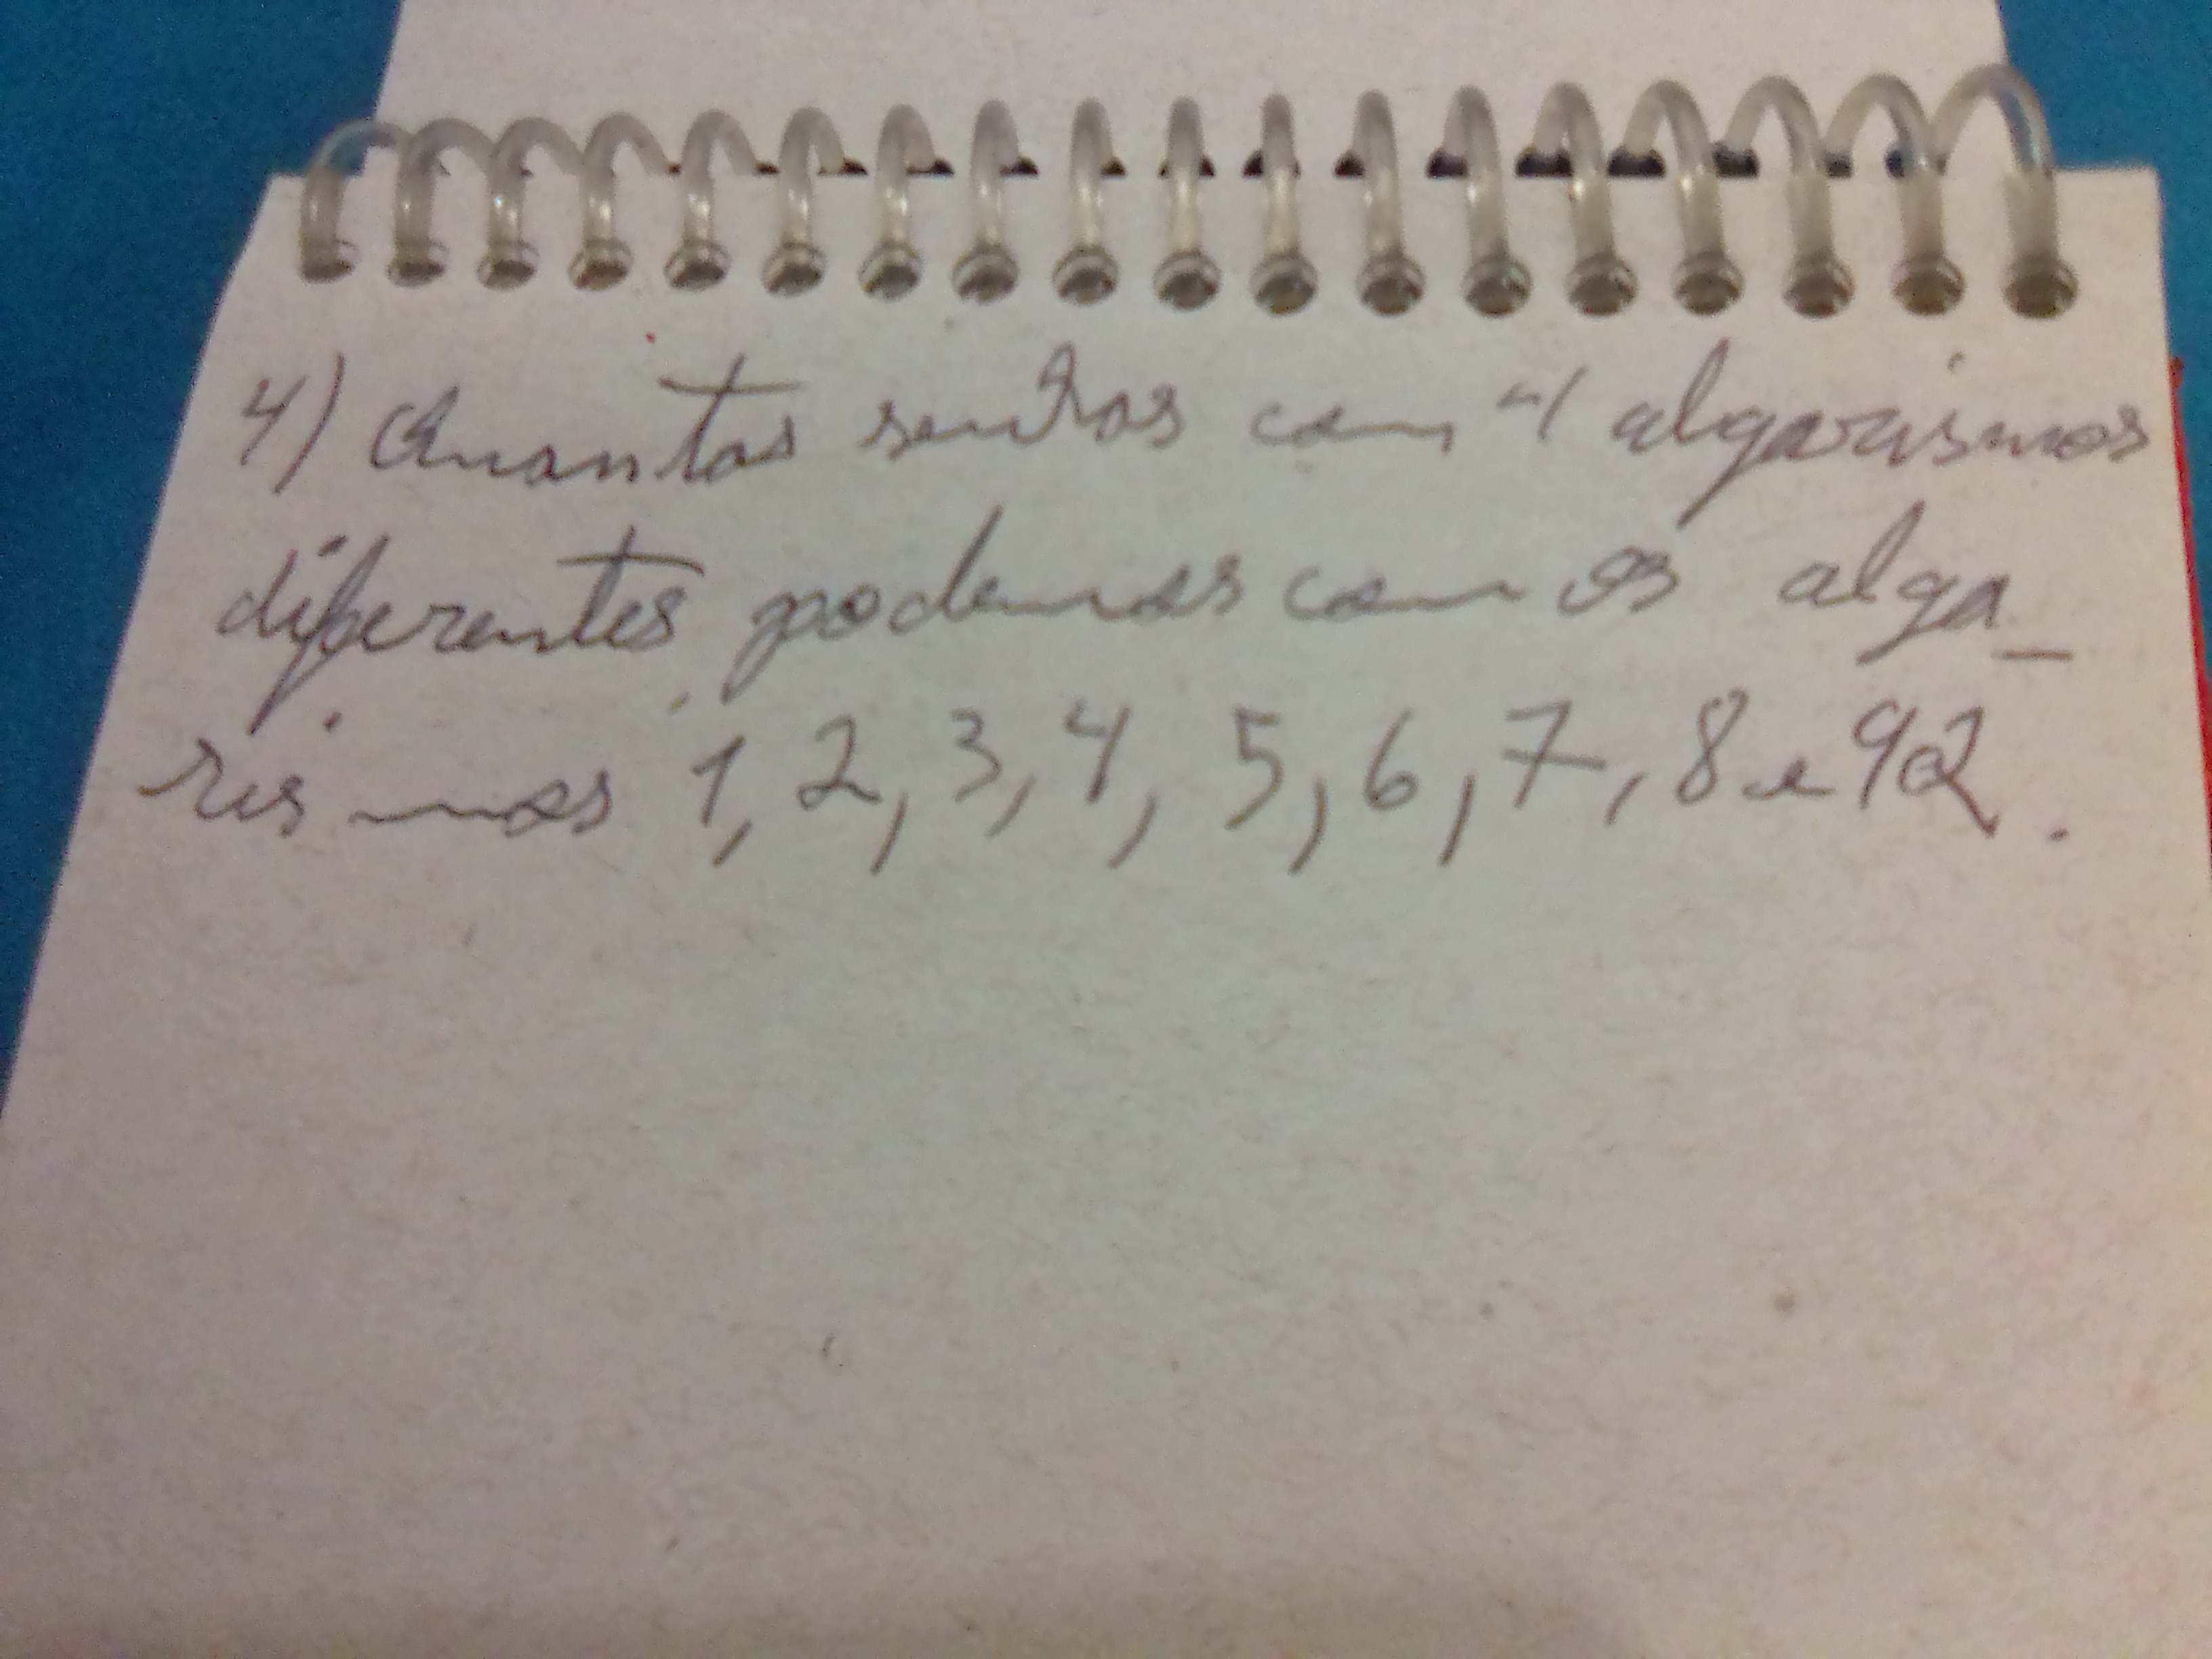 4) Quantas senhas com 4 algarismos
diferentes podemos com os alga_
rismos 1, 2, 3, 4, 5, 6, 7, 8 e 9?.